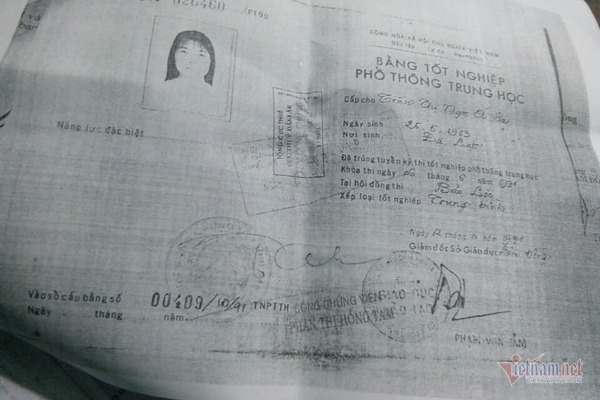 026460 /P190
CỘNG HÒA XÃ HỘI CHỦ NGHĨA VIỆT NAM
Độc lập Tự do Hạnh phúc
BẰNG TỐT NGHIỆP
PHỔ THÔNG TRUNG HỌC
Cấp cho Trần Thị Ngọc Ái Sa
Ngày sinh 25.6.1973
Nơi sinh Đà Lạt
Đã trúng tuyển kỳ thi tốt nghiệp phổ thông trung học
Khóa thi ngày 06 tháng 6 năm 1991
Tại hội đồng thi Bảo Lộc
Xếp loại tốt nghiệp Trung bình
Năng lực đặc biệt
TỔNG CỤC THUẾ
CỤC THUẾ ĐẮK LẮK
Ngày tháng năm 1991
Giám đốc Sở Giáo dục
Vào sổ cấp bằng số 00409 /10/91 TNPTTH
Ngày tháng năm
CÔNG CHỨNG VIÊN
PHAN THỊ HỒNG TÂM
PHẠM VĂN TÁM
vietnamnet